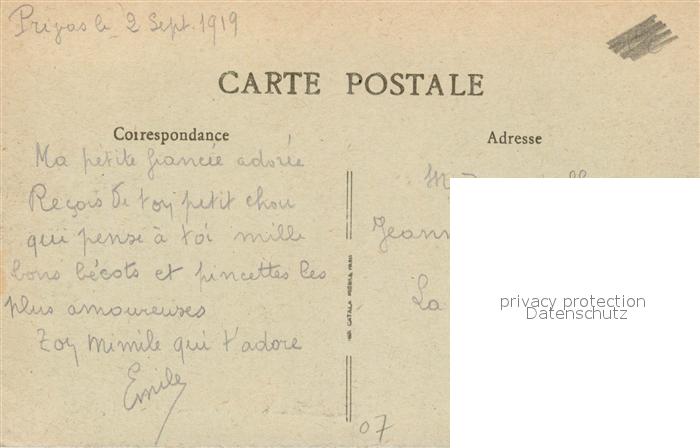 Privas le 2 Sept. 1919
CARTE POSTALE
Correspondance
Adresse
Ma petite fiancée adorée
Reçois de toy petit chou
qui pense à toi mille
bons bécots et pincettes les
plus amoureuses
Toy Mimile qui t'adore
Emile
Jeann
La
IMP. CATALA FRÈRES, PARIS
07
privacy protection
Datenschutz